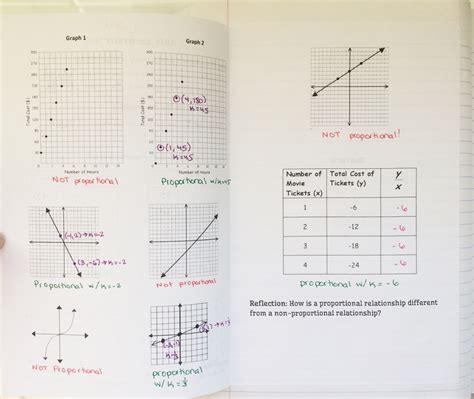 Graph 1
Graph 2
Total Cost ($)
Total Cost ($)
(4,180)
k=45
(1,45)
k=45
Number of Hours
Number of Hours
NOT proportional
Proportional w/k=45
(-1,2)→k=-2
(3,-6)→k=-2
Proportional w/k=-2
Not proportional
NOT Proportional
proportional
w/ k=1/3
NOT proportional!
Number of Movie Tickets (x)
Total Cost of Tickets (y)
y/x
1 -6 -6
2 -12 -6
3 -18 -6
4 -24 -6
proportional w/ k= -6
Reflection: How is a proportional relationship different
from a non-proportional relationship?